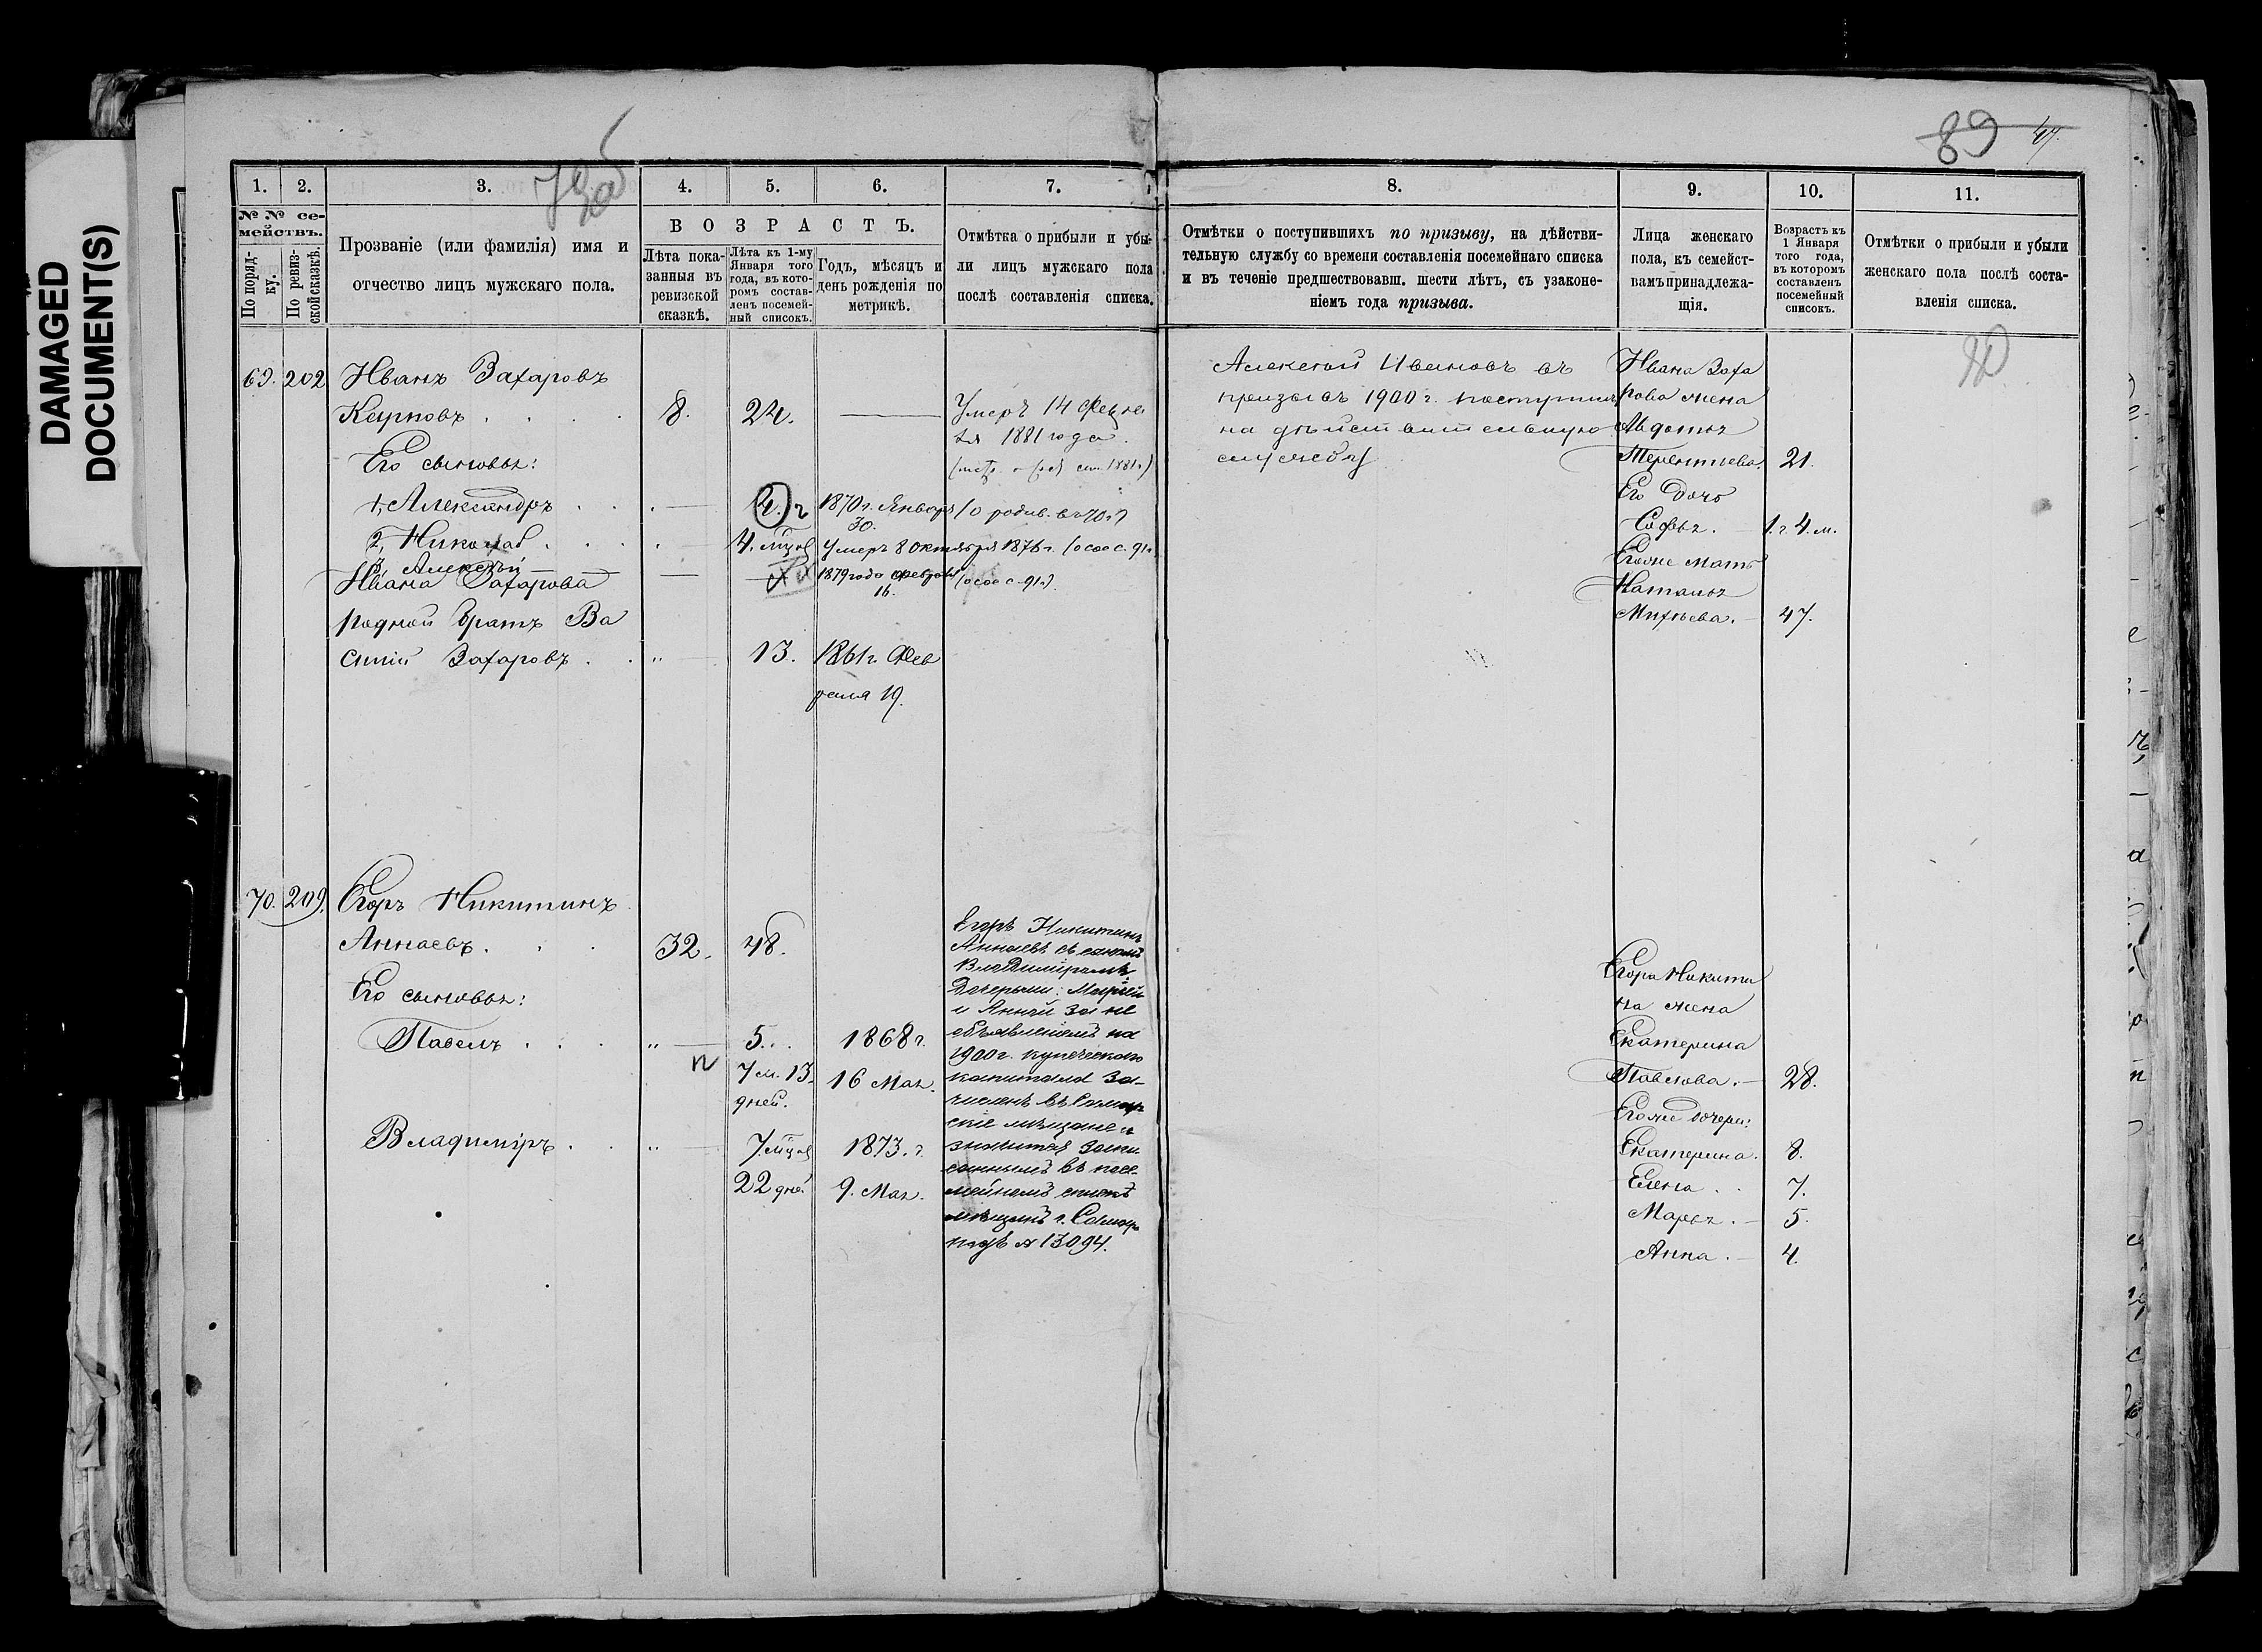 DAMAGED
DOCUMENT(S)
89
47.
1.
2.
3.
4.
5.
6.
7.
№ № се-
мействъ.
По поряд-
ку.
По ревиз-
ской сказкѣ.
Прозваніе (или фамилія) имя и
отчество лицъ мужскаго пола.
ВОЗРАСТЪ.
Лѣта пока-
занныя въ
ревизской
сказкѣ.
Лѣта къ 1-му
Января того
года, въ кото-
ромъ состав-
ленъ посемей-
ный списокъ.
Годъ, мѣсяцъ и
день рожденія по
метрикѣ.
Отмѣтка о прибыли и убы-
ли лицъ мужскаго пола
послѣ составленія списка.
69. 202 Иванъ Захаровъ
Карповъ 8. 24. Умеръ 14
1881 года.
Его сыновья:
1, Александръ 4. г 1870 г. Января
30.
2, Николай 4. мѣся Умеръ 8 октября 1876 г.
3, Алексѣй 1879 года февраля
16.
Ивана Захарова
родной братъ Ва
силій Захаровъ " 13. 1861 г. Фев
раля 19.
70. 209. Егоръ Никитинъ
Аннаевъ 32. 48.
Его сыновья:
Павелъ " 5. 1868 г.
7 м. 13. 16 Мая.
дней.
Владиміръ " 7. мѣся 1873. г.
22 дней 9. Мая.
Егоръ Никитинъ
Аннаевъ съ сыномъ
Владиміромъ
Дочерьми: Марьей
и Анной за не
объявленіемъ на
1900 г. купеческаго
капитала за-
численъ въ Самар
скіе мѣщане и
значится запи
саннымъ въ посе-
мейномъ спискѣ
мѣщанъ г. Самары
подъ № 13094.
8.
9.
10.
11.
Отмѣтки о поступившихъ по призыву, на дѣйстви-
тельную службу со времени составленія посемейнаго списка
и въ теченіе предшествовавш. шести лѣтъ, съ узаконе-
ніемъ года призыва.
Лица женскаго
пола, къ семейст-
вамъ принадлежа-
щія.
Возрастъ къ
1 Января
того года,
въ которомъ
составленъ
посемейный
списокъ.
Отмѣтки о прибыли и убыли
женскаго пола послѣ соста-
вленія списка.
Алексѣй Ивановъ въ
призывъ 1900 г. поступилъ
на дѣйствительную
службу
Ивана Заха
рова жена
Авдотья
Терентьева. 21.
Его дочь
Софья. 1. г. 4. м.
Егоже мать
Наталья
Михѣева. 47.
Егора Никити
на жена
Екатерина
Павлова. 28.
Егоже дочери:
Екатерина. 8.
Елена 7.
Марья. 5.
Анна. 4.